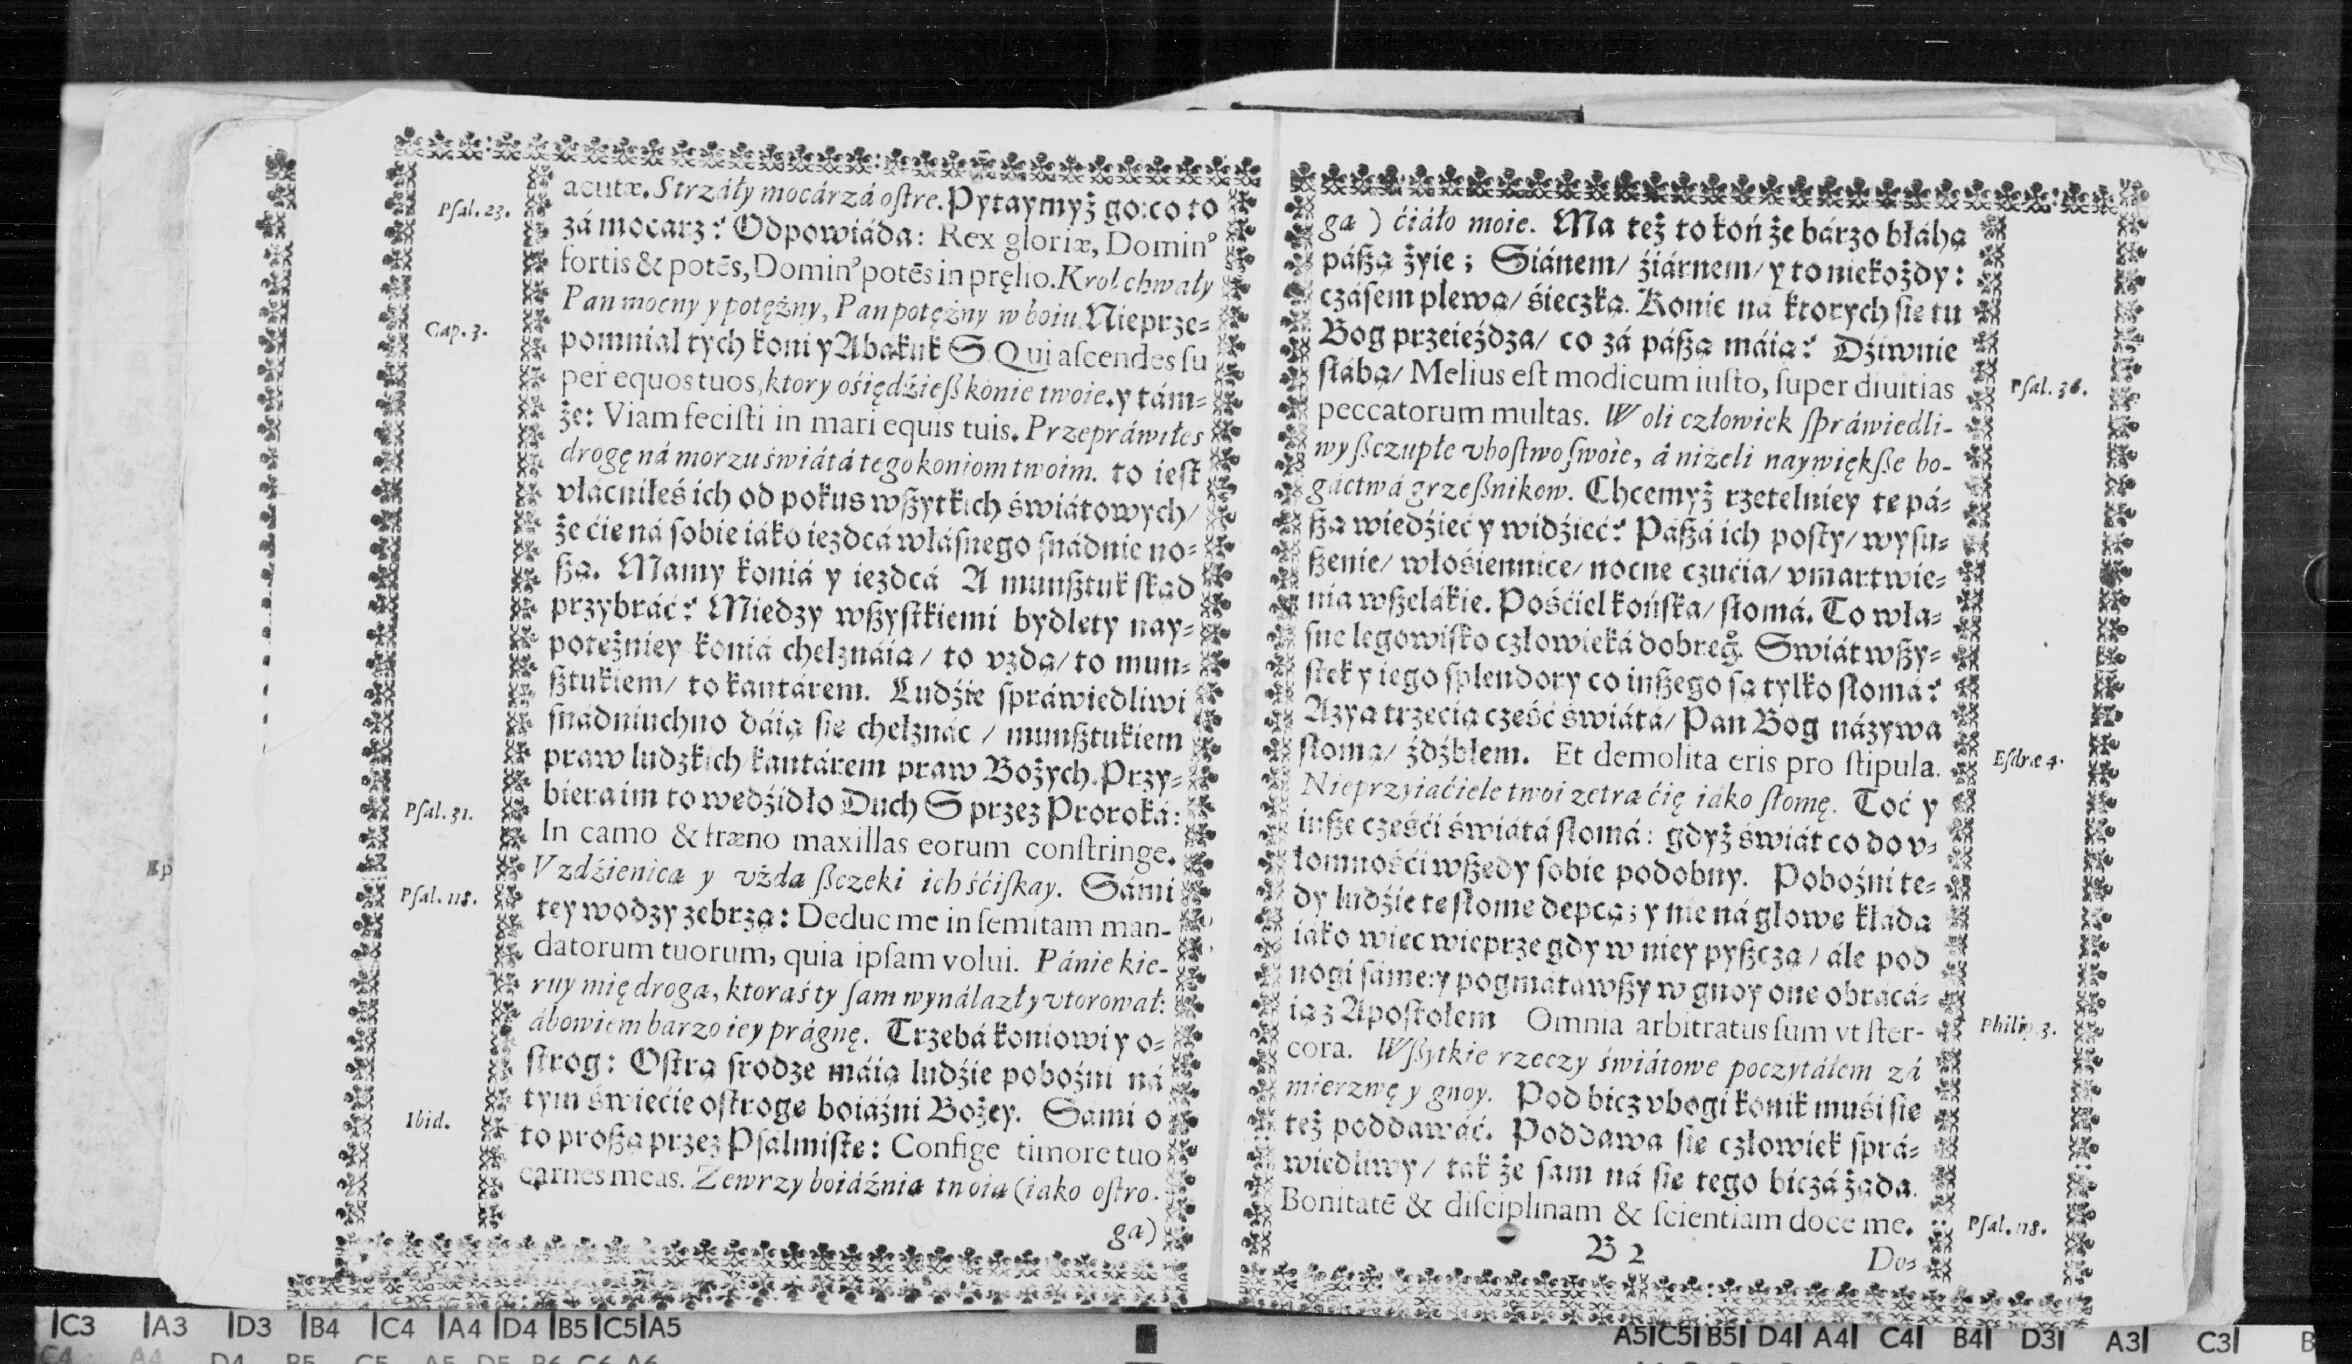 acutæ. Strzáły mocárzá oſtre. Pytaymyż go: co to
Pſal. 23.
zá mocarz? Odpowiáda: Rex gloriæ, Dominꝰ
fortis & potẽs, Dominꝰ potẽs in pręlio. Krol chwały
Pan mocny y potężny, Pan potężny w boiu. Nieprze-
Cap. 3.
pomniał tych koni y Abakuk S. Qui aſcendes ſu
per equos tuos, ktory ośiędźieß konie twoie. y tám-
że: Viam feciſti in mari equis tuis. Przepráwiłes
drogę ná morzu świátá tego koniom twoim. to ieſt
vłácniłeś ich od pokus wßytkich świátowych/
że ćie ná ſobie iáko iezdcá włáſnego ſnádnie no-
ßą. Mamy koniá y iezdcá A munßtuk ſkąd
przybráć? Miedzy wßyſtkiemi bydlety nay-
potężniey koniá chełznáią / to vzdą/ to mun-
ßtukiem/ to kantárem. Ludźie ſpráwiedliwi
ſnádniuchno dáią ſie chełznác / munßtukiem
praw ludzkich kantárem praw Bożych. Przy-
biera im to wedźidło Duch S przez Proroká:
Pſal. 31.
In camo & fræno maxillas eorum conſtringe.
Vzdźienicą y vżdą ßczeki ich śćiſkay. Sámi
Pſal. 118.
tey wodzy zebrzą: Deduc me in ſemitam man-
datorum tuorum, quia ipſam volui. Pánie kie-
ruy mię drogą, ktorąś ty ſam wynálazł y vtorował:
ábowiem barzo iey prágnę. Trzebá koniowi y o-
ſtrog: Oſtrą ſrodze máią ludźie pobożni ná
tym świećie oſtrogę boiáźni Bożey. Sami o
Ibid.
to proßą przez Pſalmiſtę: Confige timore tuo
carnes meas. Zewrzy boiáźnią twoią (iako oſtro-
ga)
ga ) ćiáło moie. Ma też to koń że bárzo błáhą
páßą żyie; Siánem/ źiárnem/ y to niekożdy:
czáſem plewą/ śieczką. Konie ná ktorych ſie tu
Bog przeieżdza/ co zá páßą máią? Dźiwnie
ſłábą/ Melius eſt modicum iuſto, ſuper diuitias
Pſal. 36.
peccatorum multas. Woli człowiek ſpráwiedli-
wy ßczupłe vboſtwo ſwoie, á niżeli naywiękße bo-
gáctwá grzeßnikow. Chcemyż rzetelniey te pá-
ßą wiedźieć y widźieć? Páßá ich poſty/ wyſu-
ßenie/ włośiennice/ nocne czućia/ vmartwie-
nia wßelákie. Pośćiel końſka/ ſłomá. To wła-
ſne legowiſko człowieká dobreg̊. Swiát wßy-
ſtek y iego ſplendory co inßego ſą tylko ſłomá?
Azyą trzecią cześć świátá/ Pan Bog názywa
ſłomą/ źdźbłem. Et demolita eris pro ſtipula.
Eſdræ 4.
Nieprzyiaćiele twoi zetrą ćię iáko ſłomę. Toć y
inße cześći świátá ſłomá: gdyż świát co do v-
łomnośći wßędy ſobie podobny. Pobożni te-
dy ludźie te ſłome depcą; y nie ná głowe kładą
iáko wiec wieprze gdy w niey pyßczą / ále pod
nogi ſáme: y pogmátawßy w gnoy one obracá-
ią z Apoſtołem Omnia arbitratus ſum vt ſter-
Philip. 3.
cora. Wßytkie rzeczy świátowe poczytáłem zá
mierzwę y gnoy. Pod bicz vbogi konik muśi ſie
też poddawáć. Poddawa ſie człowiek ſprá-
wiedliwy/ tak że ſam ná ſie tego biczá żąda.
Bonitatẽ & diſciplinam & ſcientiam doce me.
Pſal. 118.
B 2
Do-
C3 A3 D3 B4 C4 A4 D4 B5 C5 A5
A5 C5 B5 D4 A4 C4 B4 D3 A3 C3 B